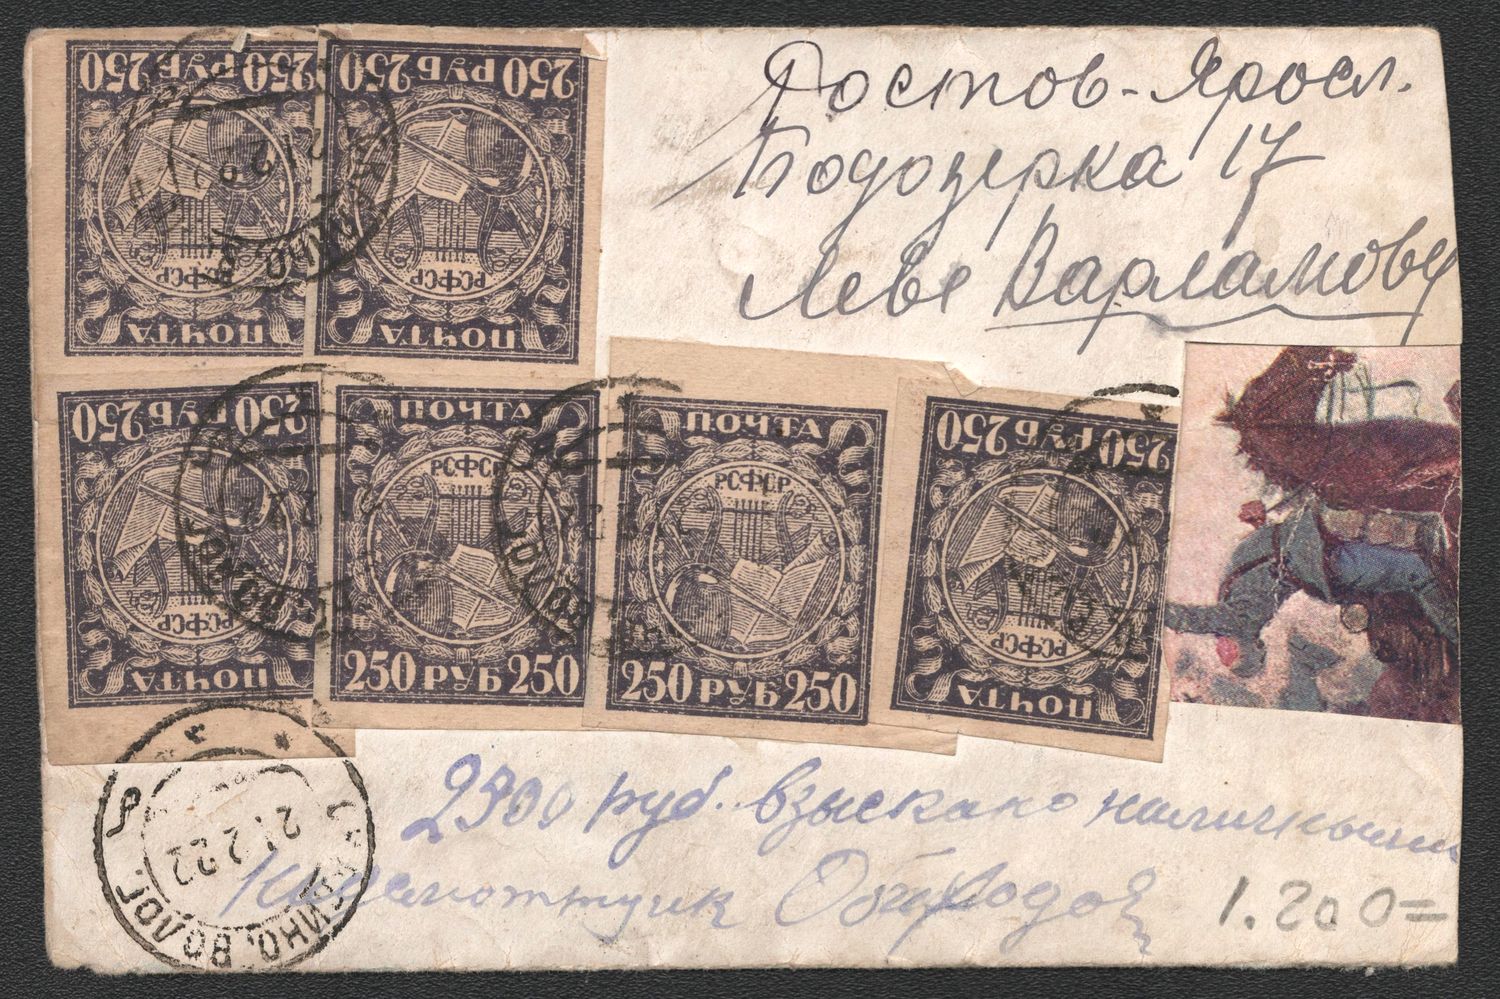 250 РУБ 250
РСФСР
ПОЧТА
250 РУБ 250
РСФСР
ПОЧТА
Ростов-Яросл.
Подозерка 17
Леве Варламову
250 РУБ 250
РСФСР
ПОЧТА
ПОЧТА
РСФСР
250 РУБ 250
ПОЧТА
РСФСР
250 РУБ 250
250 РУБ 250
РСФСР
ПОЧТА
руб. взыскано наличными
21 2 22
ВОЛОГ.
1.200=